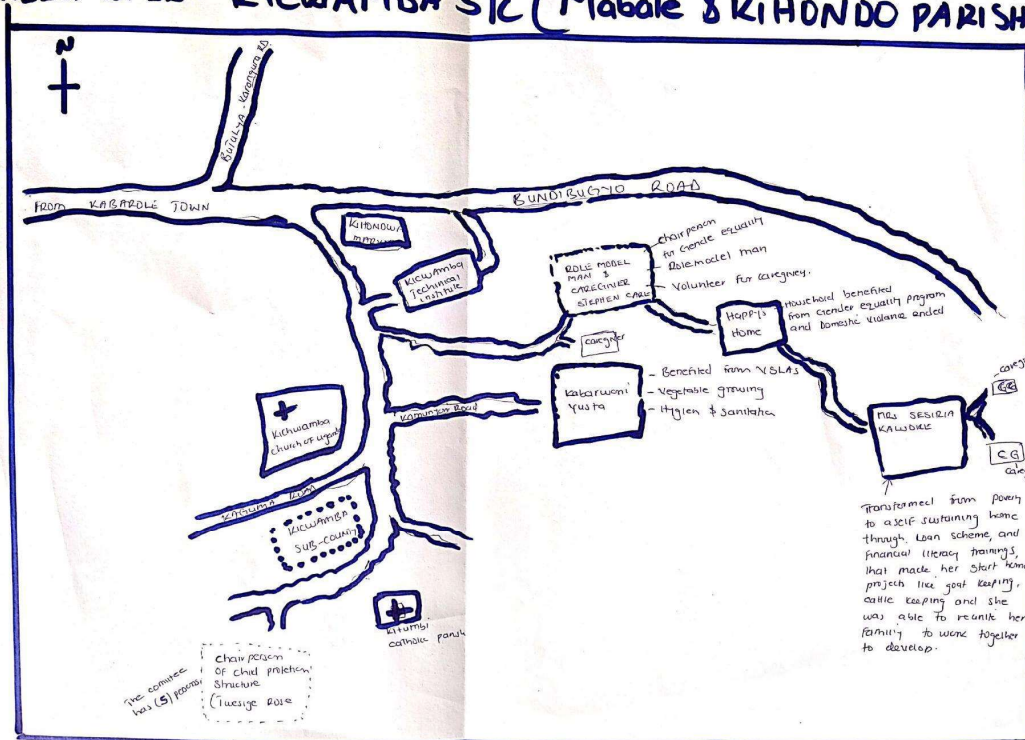 KICWAMBA S/C (Mabale & KIHONDO PARISH
N
BUTULYA - Karangura RD
FROM KABAROLE TOWN
BUNDIBUGYO ROAD
KIHONDWA
KICWAMBA
Techinical
institute
ROLE MODEL
MAN &
CAREGIVER
STEPHEN CARE
chairperson
for Gende equality
Rolemodel man
Volunteer for caregivey.
caregiver
Happys
Home
Household benefited
from Gender equality program
and Domestic Violance ended
Kabarweni
Yusta
- Benefited from VSLAS
- Vegetable growing
- Hygien & Sanitation
Kamunton Road
Kichwamba
church of Uganda
KAGUMA ROAD
KICWAMBA
SUB-COUNTY
Kitumbi
catholic parish
MRS SESIRIA
KALWOKE
CG
CG
Transformed from poverty
to aself sustaining home
through, Loan scheme, and
financial literacy trainings,
that made her start home
project like goat keeping,
cattle keeping and she
was able to reunite her
family to work together
to develop.
The comittee
has (5) persons
chairperson
Of chid protetion
Structure
(Twesige Rose